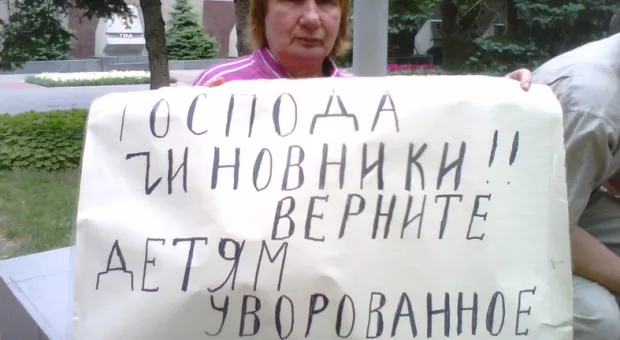 ГОСПОДА
ЧИНОВНИКИ!!
ВЕРНИТЕ
ДЕТЯМ
УВОРОВАННОЕ